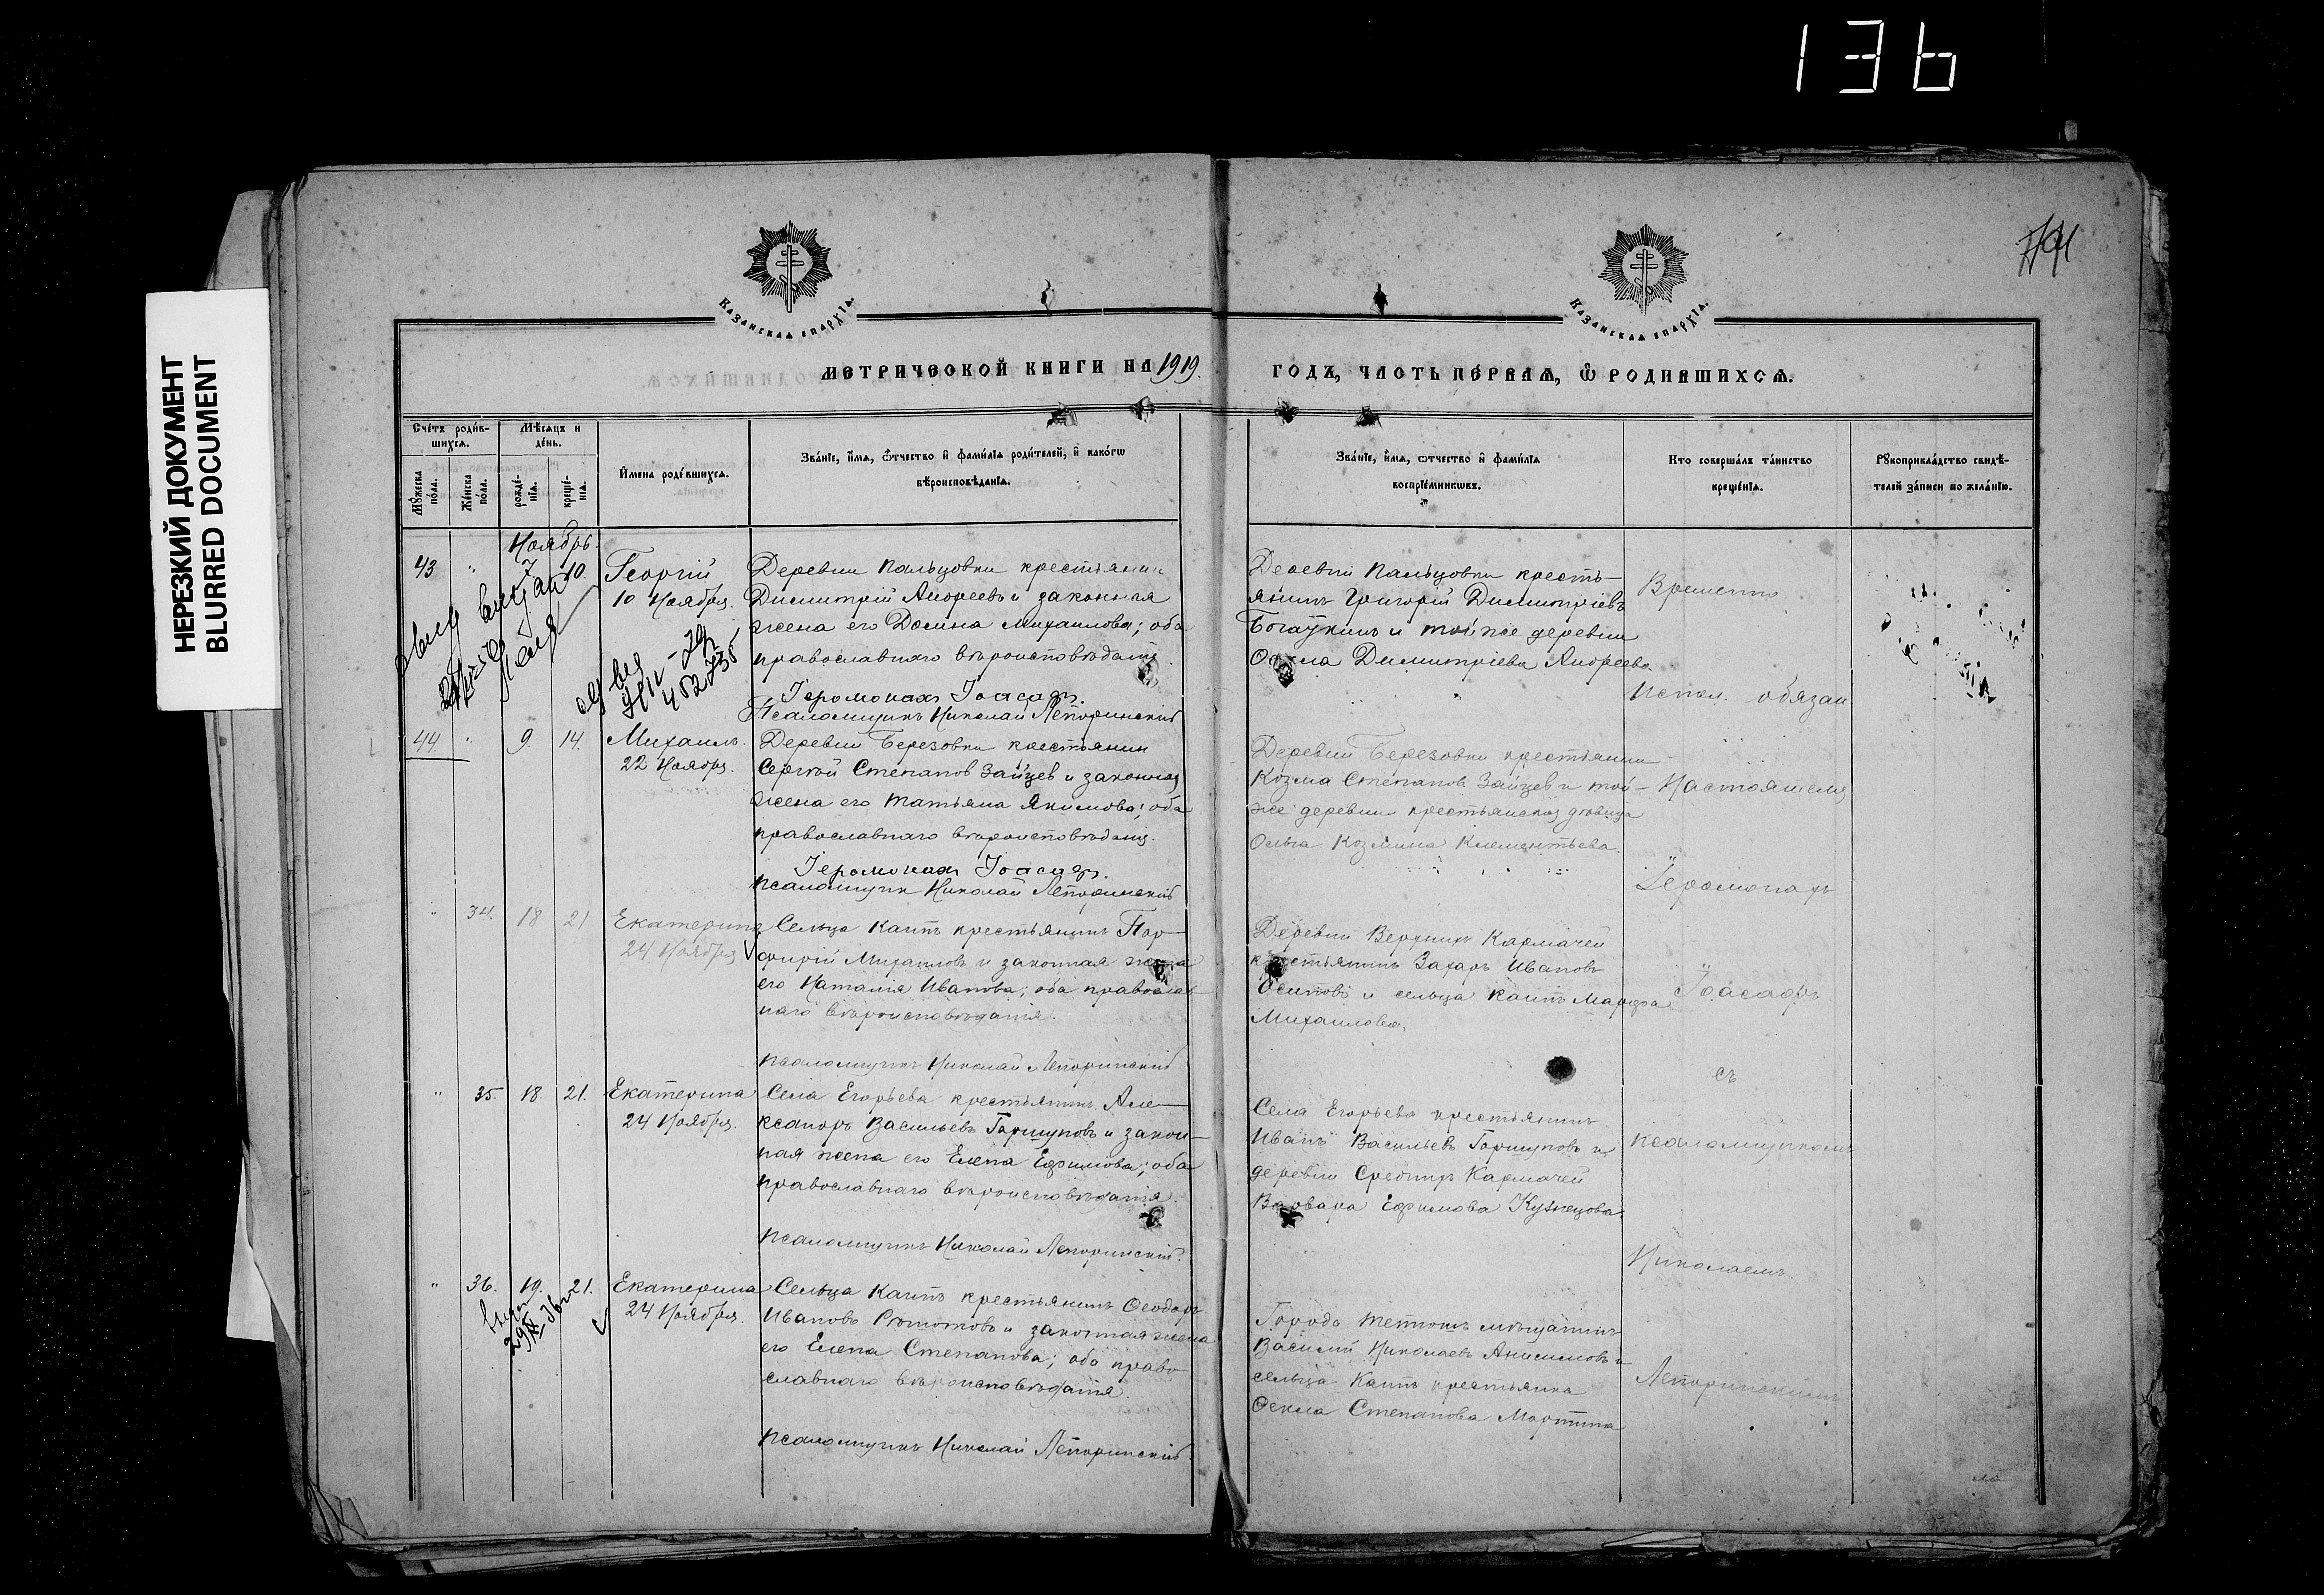 136
НЕРЕЗКИЙ ДОКУМЕНТ
BLURRED DOCUMENT
Казанская епархіѧ.
Казанская епархіѧ.
МЕТРИЧЕСКОЙ КНИГИ НА 1919
ГОДЪ, ЧАСТЬ ПЕРВАѦ, Ѡ РОДИВШИХСѦ.
Счетъ родившихсѧ.
Мѣсѧцъ и день.
Мꙋжеска пола.
Женска пола.
рожденіѧ.
крещеніѧ.
Имена родившихсѧ.
Званіе, имѧ, ѿчество и фамиліѧ родителей, и какогѡ
вѣроисповѣданіѧ.
Званіе, имѧ, ѿчество и фамиліѧ
воспріемникѡвъ.
Кто совершалъ таинство
крещеніѧ.
Рꙋкоприкладство свидѣ-
телей записи по желанію.
Ноябрь.
43 " 7 10.
Георгій
10 Ноября.
Деревни Пальцовки крестьянин
Димитрій Андреевъ и законная
жена его Домна Михаилова; оба
православнаго вѣроисповѣданія.
Іеромонахъ Іоасафъ.
Псаломщикъ Николай Лепоринскій
Деревни Пальцовки кресть-
янинъ Григорій Димитріевъ
и той же деревни
Димитріева Андреева.
44. " 9. 14.
Михаилъ.
22 Ноября.
Деревни Березовки крестьянин
Сергѣй Степанов Зайцев и законная
жена его Татьяна Якимова; оба
православнаго вѣроисповѣданія.
Іеромонахъ Іоасафъ.
Псаломщик Николай Лепоринскій
Деревни Березовки крестьянин
Козма Степанов Зайцев и той-
же деревни крестьянская дѣвица
Ольга Козмина Климентьева.
" 34. 18 21
Екатерина
24 Ноября
Сельца Каипъ крестьянинъ Пор-
фирій Михаиловъ и законная жена
его Наталія Иванова; оба православ-
наго вѣроисповѣданія.
Псаломщикъ Николай Лепоринскій
Деревни Верхнихъ Кармачей
крестьянинъ Захаръ Ивановъ
Осиповъ и сельца Каипъ Марфа
Михаилова.
" 35. 18. 21.
Екатерина
24 Ноября.
Села Егорьева крестьянинъ Але-
ксандръ Васильевъ Горшуновъ и закон-
ная жена его Елена Ефимова; оба
православнаго вѣроисповѣданія.
Псаломщикъ Николай Лепоринскій.
Села Егорьева крестьянинъ
Иванъ Васильевъ Горшуновъ и
деревни Среднихъ Кармачей
Варвара Ефимова Кузнецова.
" 36. 19. 21.
Екатерина
24 Ноября.
Сельца Каипъ крестьянинъ Ѳеодоръ
Ивановъ и законная жена
его Елена Степанова; оба право-
славнаго вѣроисповѣданія.
Псаломщикъ Николай Лепоринскій.
Города мѣщанинъ
Василій Николаевъ Анисимовъ и
сельца Каипъ крестьянка
Ѳекла Степанова
Временно
испол. обязан.
Настоятеля
Іеромонахъ
Іоасафъ
съ
псаломщикомъ
Николаемъ
Лепоринскимъ